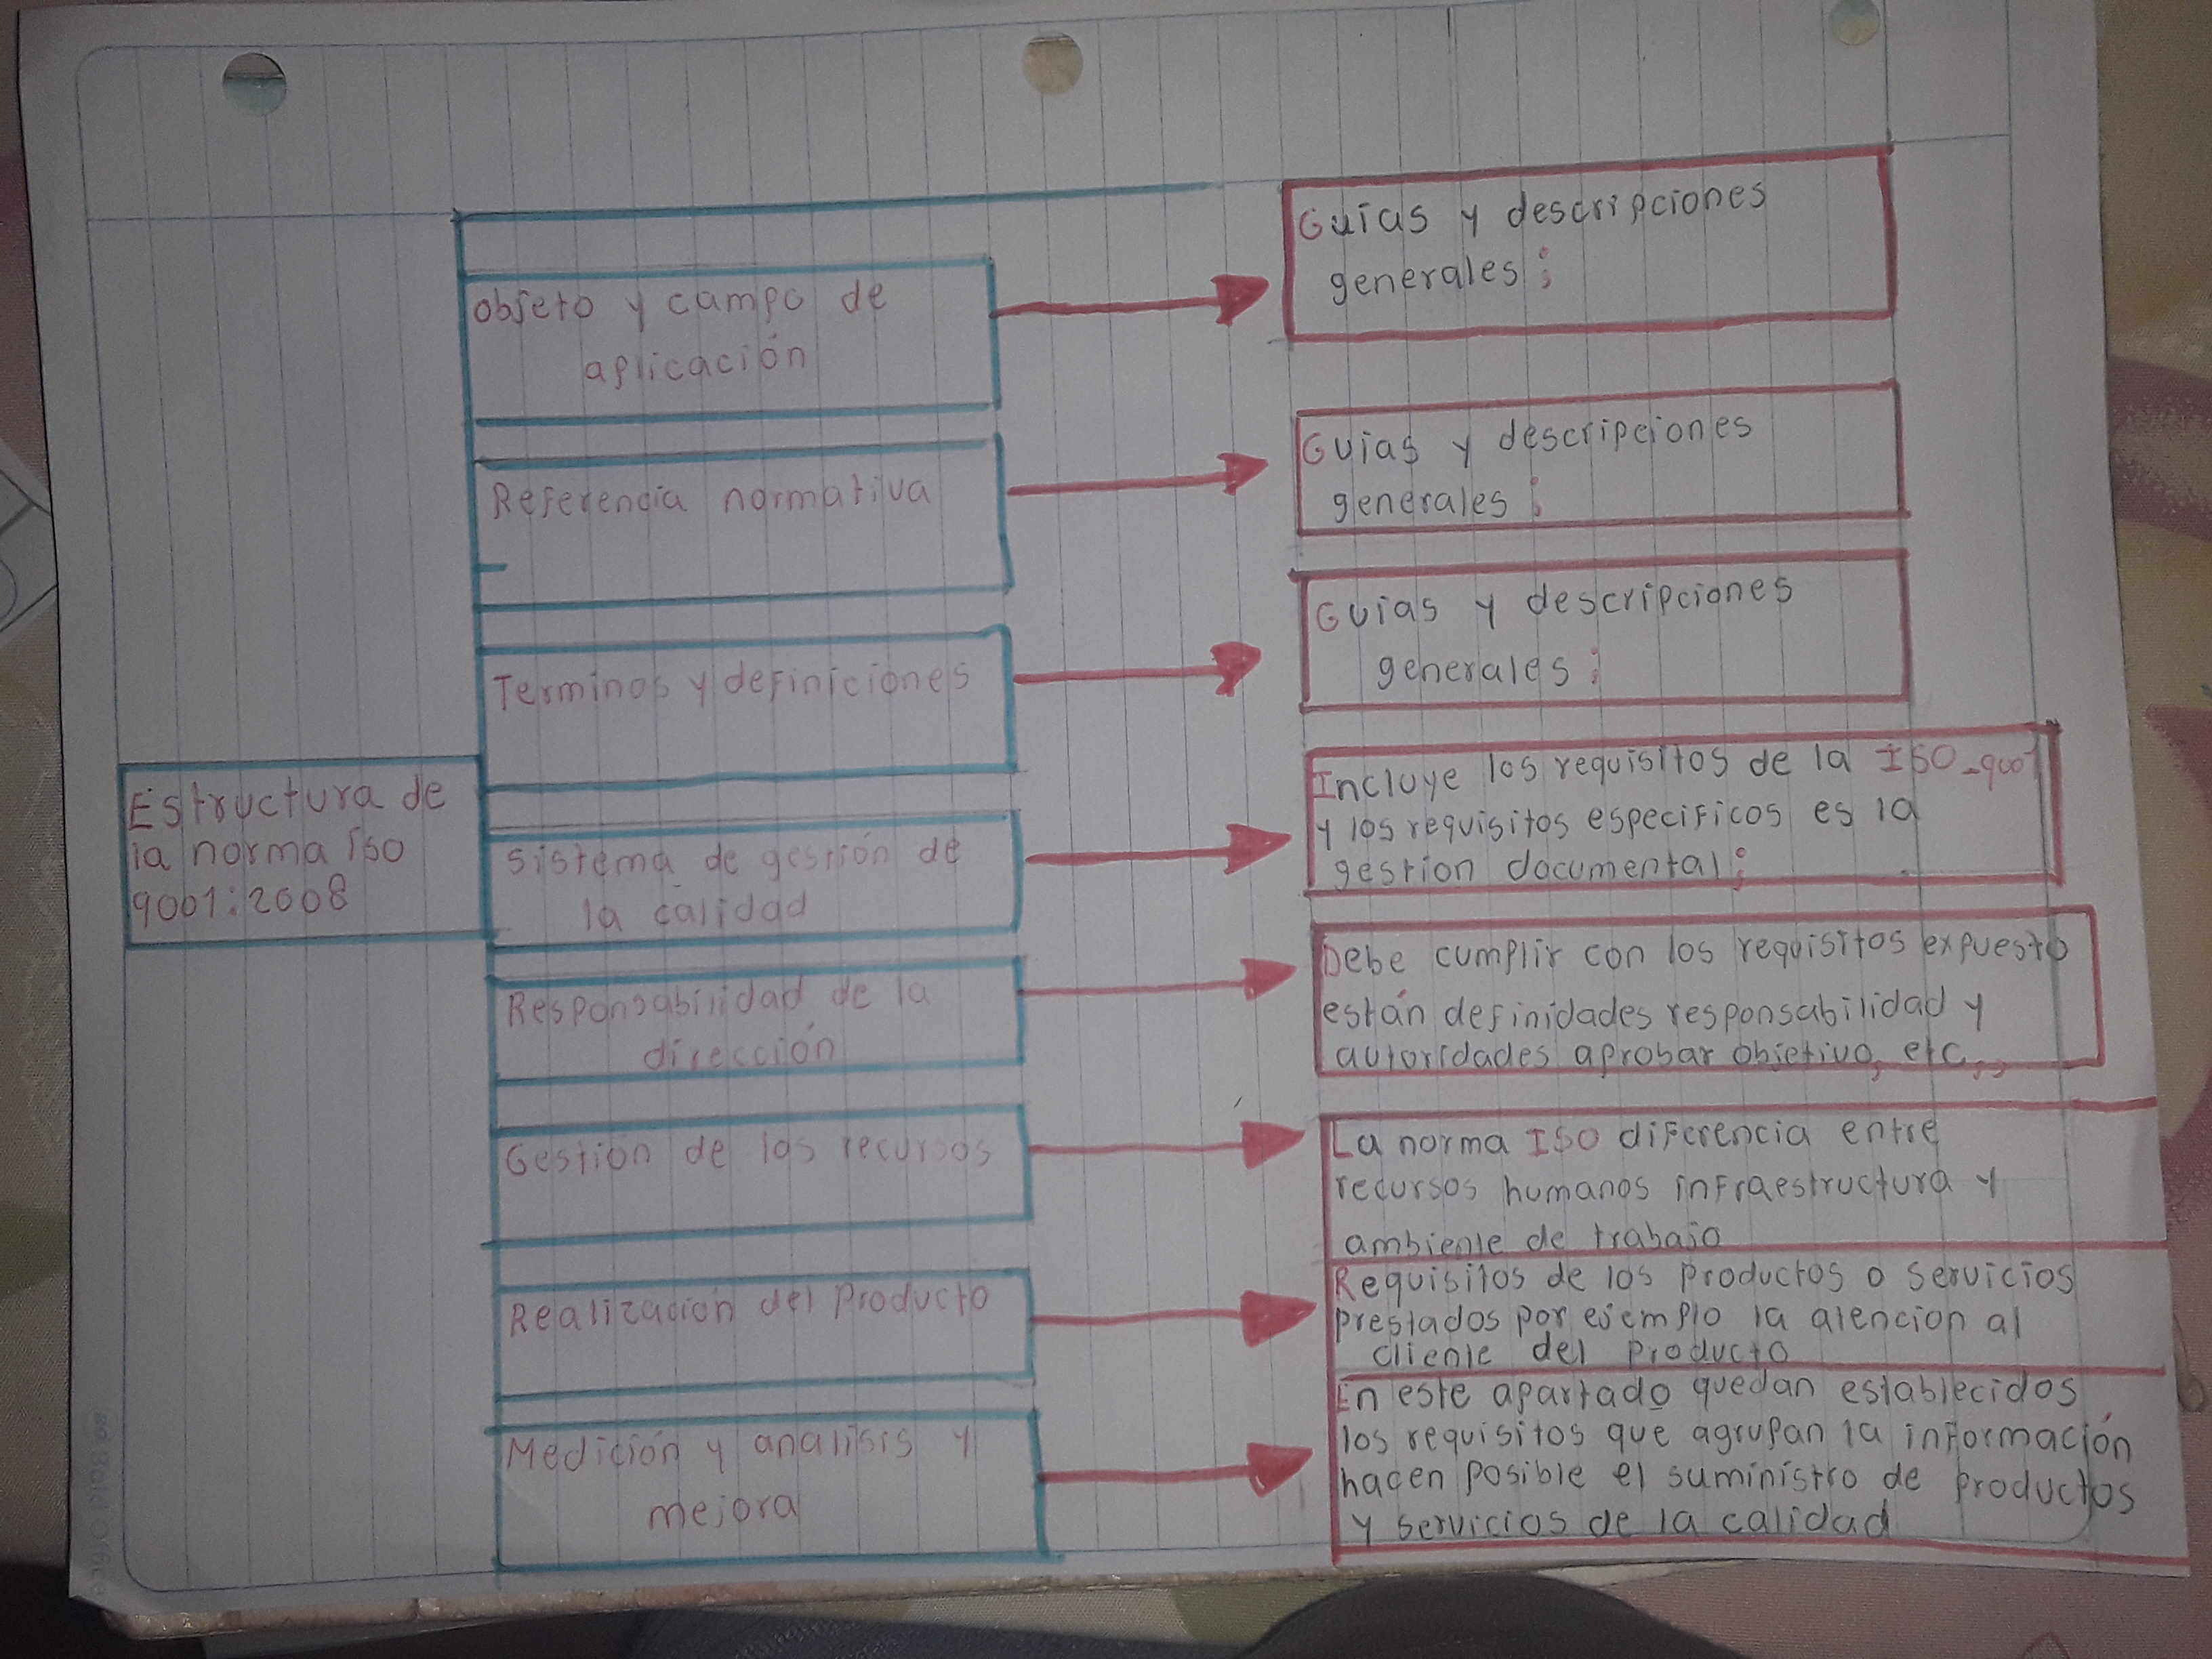 Estructura de
la norma iso
9001:2008
objeto y campo de
aplicación
Guías y descripciones
generales;
Referencia normativa
Guias y descripciones
generales:
Terminos y definiciones
Guias y descripciones
generales:
Sistema de gestión de
la calidad
Incluye los requisitos de la ISO-9001
y los requisitos especificos es la
gestion documental;
Responsabilidad de la
dirección
Debe cumplir con los requisitos expuesto
están definidades responsabilidad y
autoridades aprobar objetivo, etc,,
Gestión de los recursos
La norma ISO diferencia entre
recursos humanos infraestructura y
ambiente de trabajo
Realización del Producto
Requisitos de los productos o servicios
prestados por ejemplo la atencion al
cliente del Producto
Medición y analisis y
mejora
En este apartado quedan establecidos
los requisitos que agrupan la información
hacen posible el suministro de productos
y servicios de la calidad